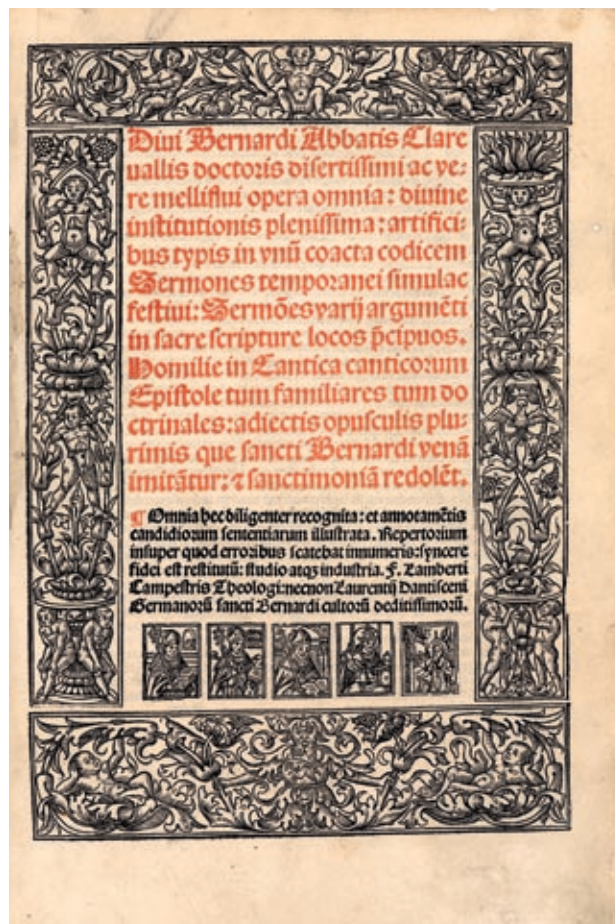 Diui Bernardi Abbatis Clare
uallis doctoris disertissimi ac ve-
re melliflui opera omnia: diuine
institutionis plenissima: artifici-
bus typis in vnū coacta codicem
Sermones temporanei simulac
festiui: Sermões varij argumēti
in sacre scripture locos p̄cipuos.
Homilie in Cantica canticorum
Epistole tum familiares tum do
ctrinales: adiectis opusculis plu-
rimis que sancti Bernardi venā
imitātur: ⁊ sanctimoniā redolēt.
¶ Omnia hec diligenter recognita: et annotamētis
candidiorum sententiarum illustrata. Repertorium
insuper quod erroribus scatebat innumeris: syncere
fidei est restitutū: studio atqꝫ industria. F. Lamberti
Campestris Theologi: necnon Laurentij Dantisceni
Germanorū sancti Bernardi cultorū deditissimorū.